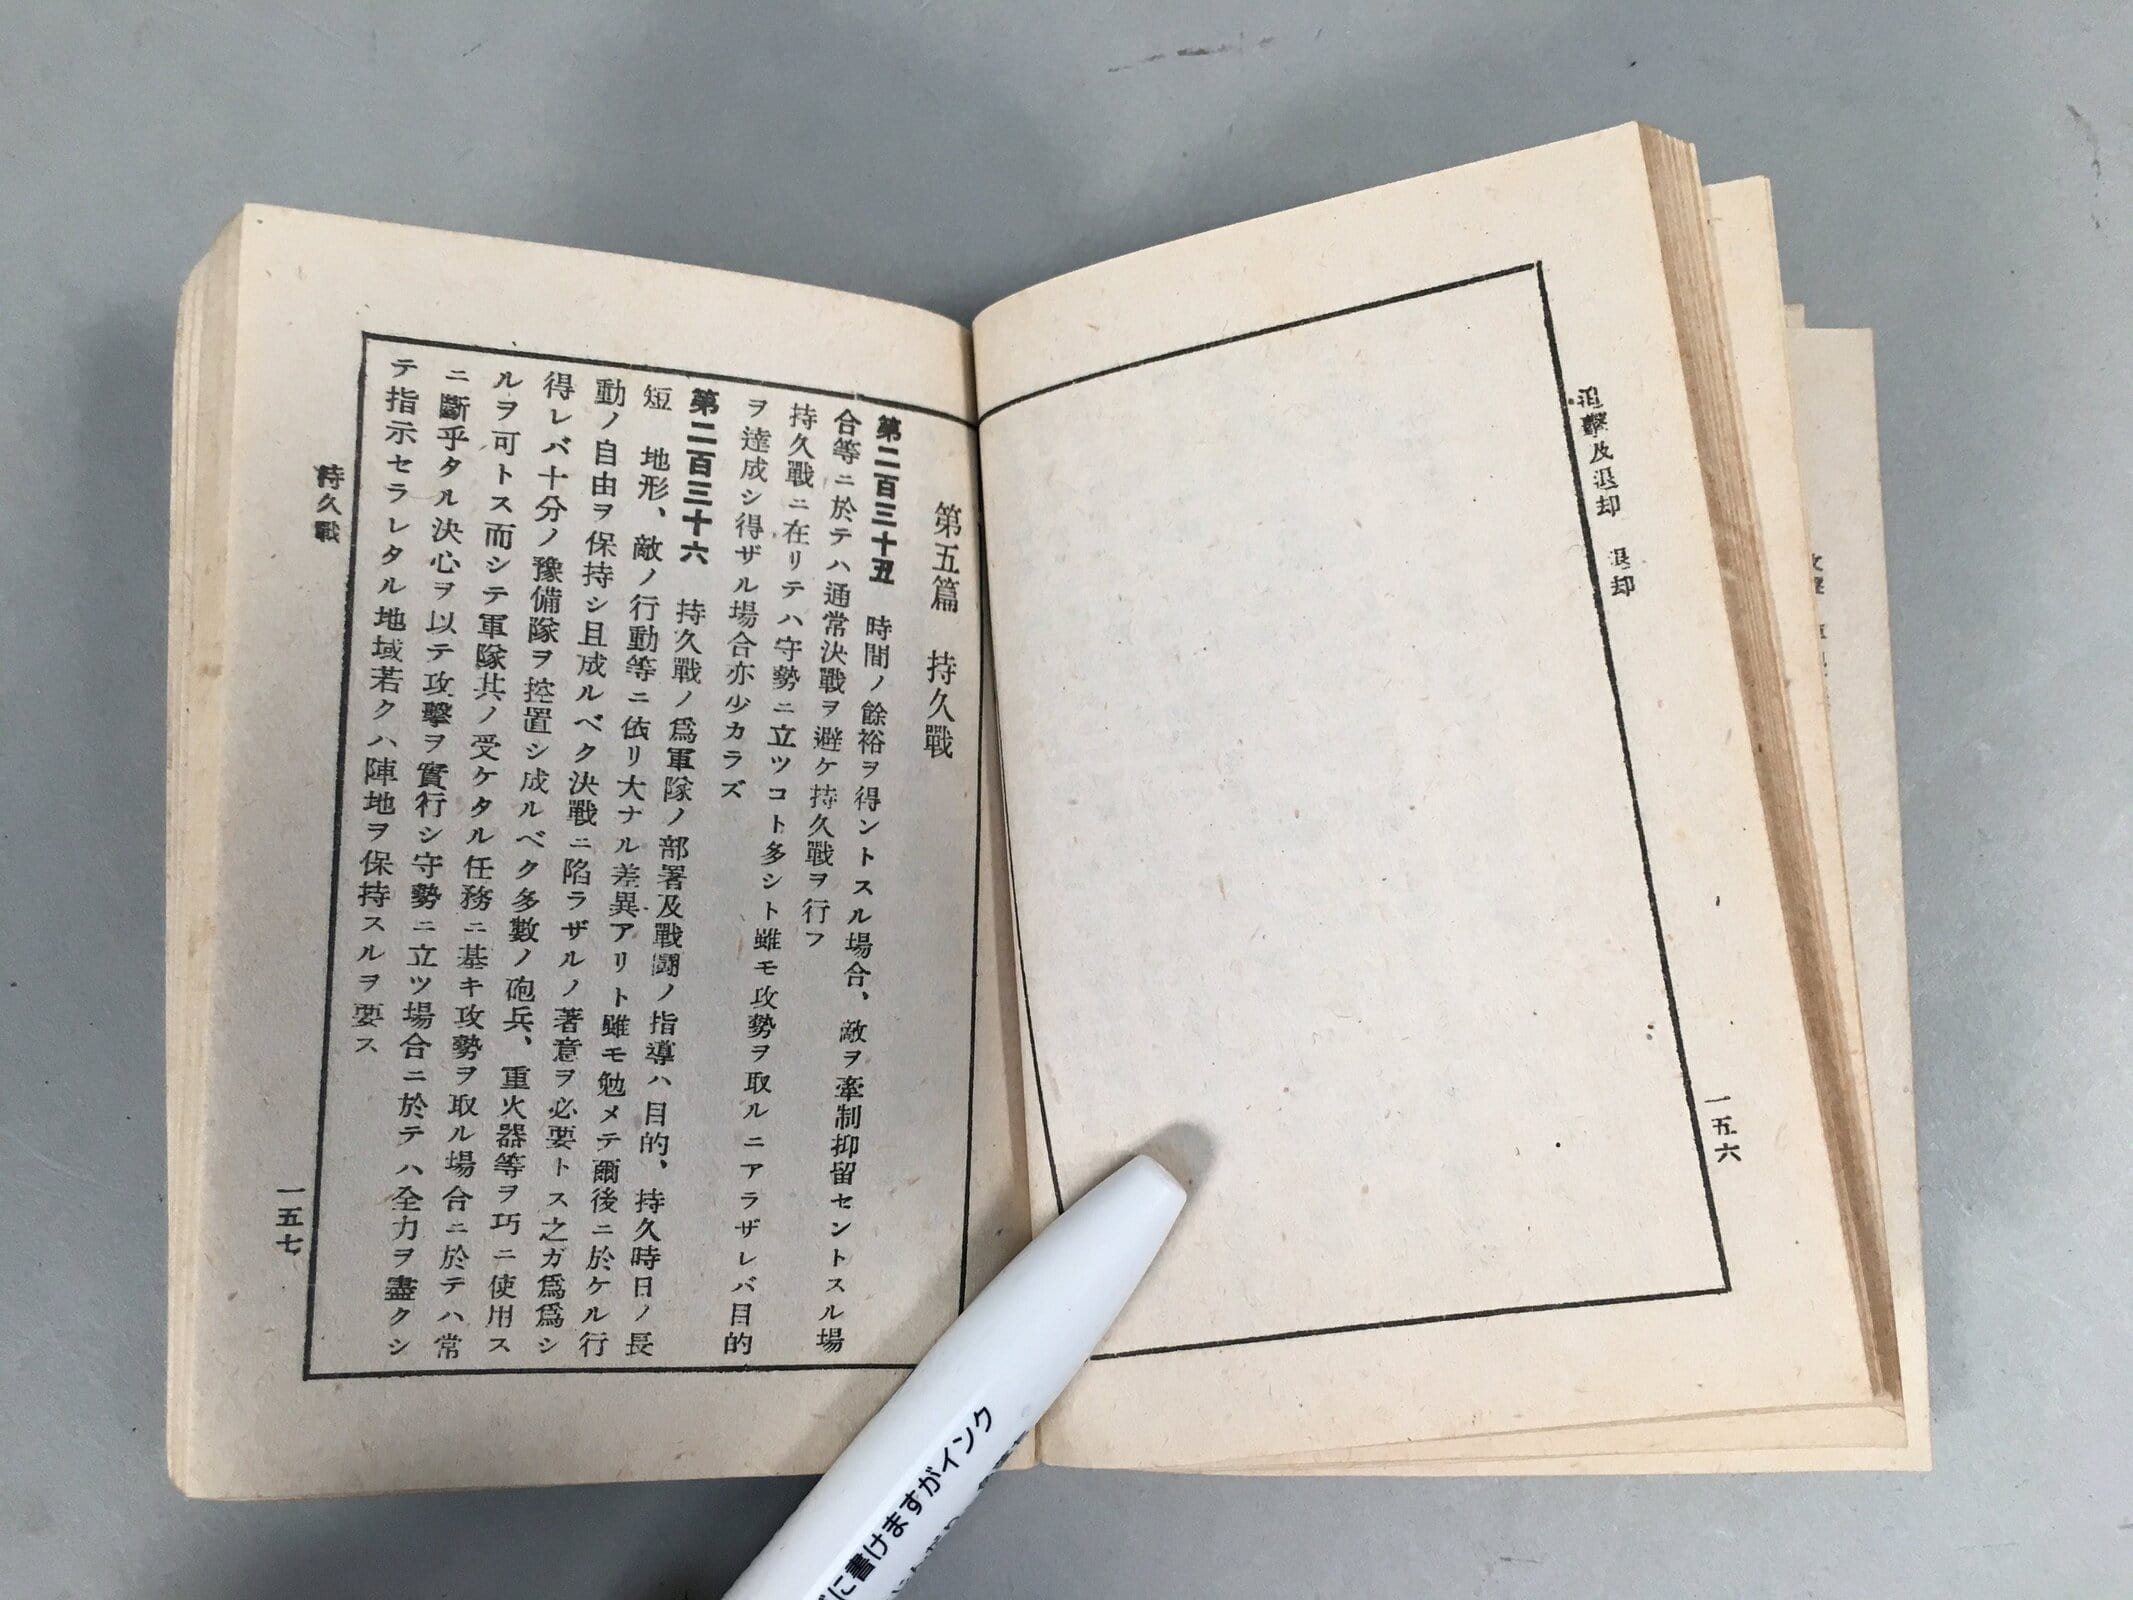 追擊及退却　退却
一五六
第五篇　持久戰
第二百三十五　時間ノ餘裕ヲ得ントスル場合、敵ヲ牽制抑留セントスル場
合等ニ於テハ通常決戰ヲ避ケ持久戰ヲ行フ
持久戰ニ在リテハ守勢ニ立ツコト多シト雖モ攻勢ヲ取ルニアラザレバ目的
ヲ達成シ得ザル場合亦少カラズ
第二百三十六　持久戰ノ爲軍隊ノ部署及戰鬪ノ指導ハ目的、持久時日ノ長
短　地形、敵ノ行動等ニ依リ大ナル差異アリト雖モ勉メテ爾後ニ於ケル行
動ノ自由ヲ保持シ且成ルベク決戰ニ陷ラザルノ著意ヲ必要トス之ガ爲爲シ
得レバ十分ノ豫備隊ヲ控置シ成ルベク多數ノ砲兵、重火器等ヲ巧ニ使用ス
ルヲ可トス而シテ軍隊其ノ受ケタル任務ニ基キ攻勢ヲ取ル場合ニ於テハ常
ニ斷乎タル決心ヲ以テ攻擊ヲ實行シ守勢ニ立ツ場合ニ於テハ全力ヲ盡クシ
テ指示セラレタル地域若クハ陣地ヲ保持スルヲ要ス
持久戰
一五七
に書けますがインク